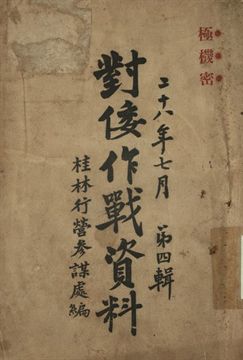 極機密
二十八年七月　第四輯
對倭作戰資料
桂林行營參謀處編